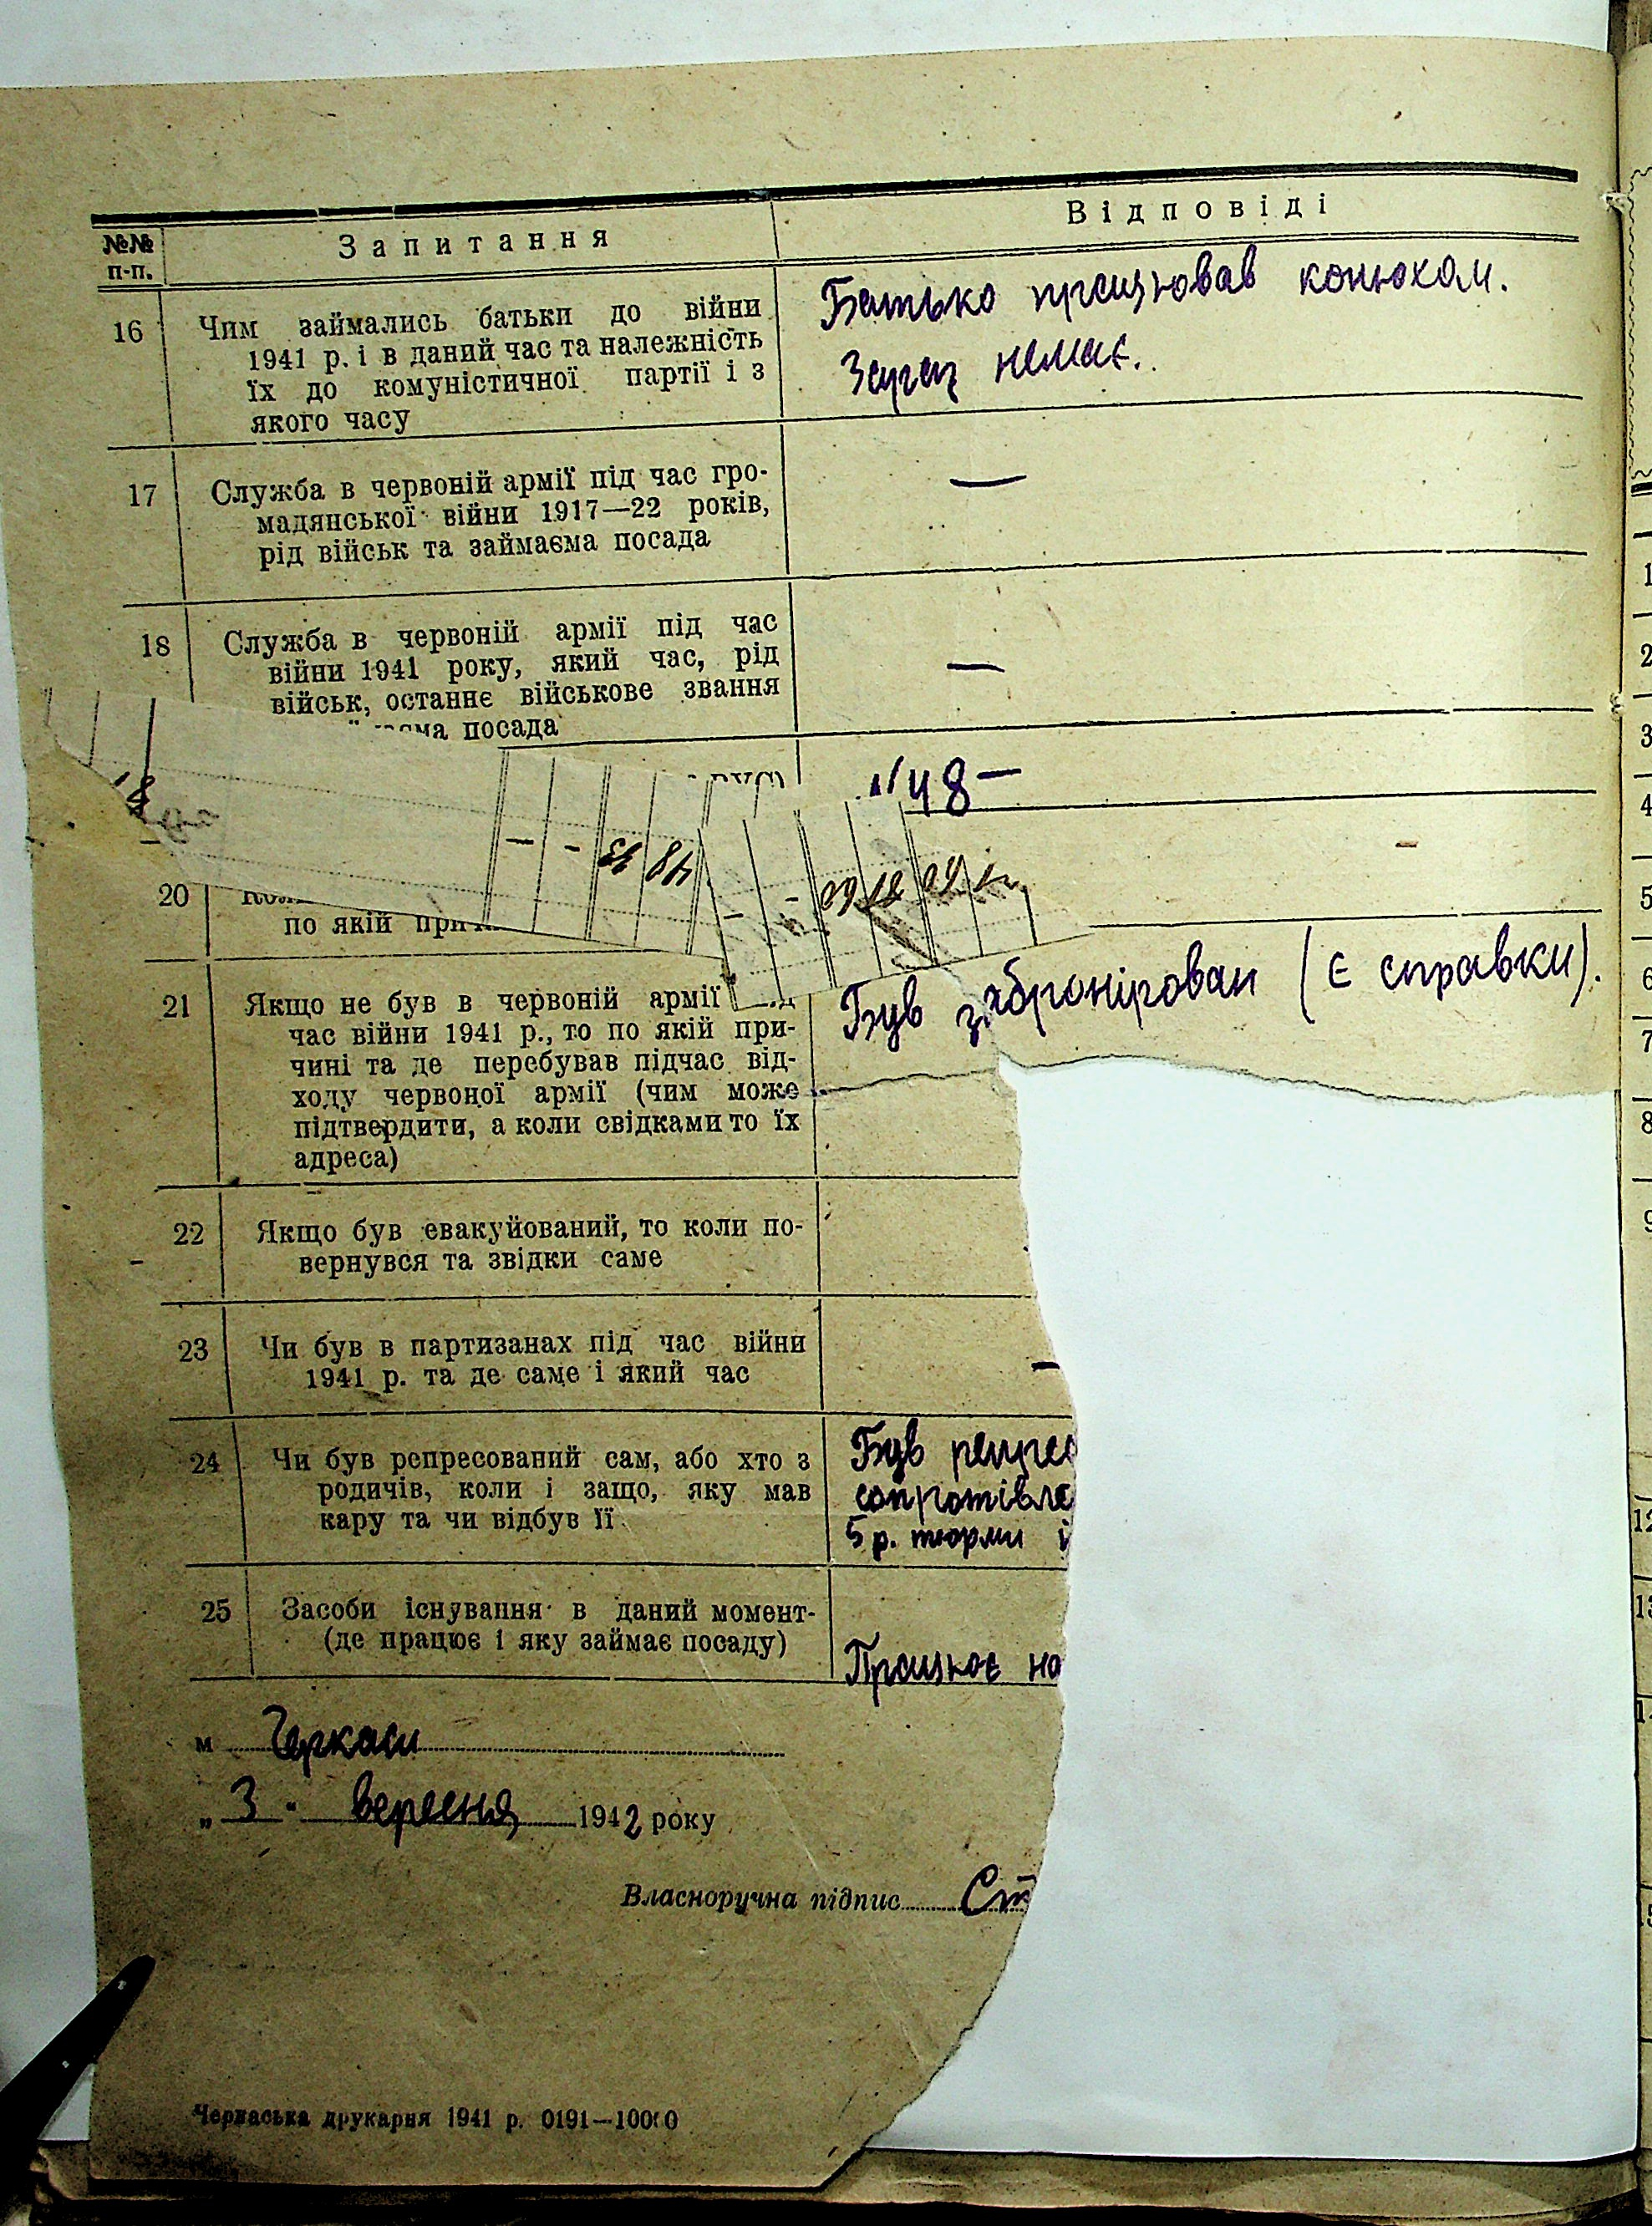 №№ п-п.
Запитання
Відповіді
16 Чим займались батьки до війни
1941 р. і в даний час та належність
їх до комуністичної партії і з
якого часу
Батько працював конюхом.
Зараз немає.
17 Служба в червоній армії під час гро-
мадянської війни 1917—22 років,
рід військ та займаєма посада
—
18 Служба в червоній армії під час
війни 1941 року, який час, рід
військ, останнє військове звання
посада
—
48 —
— - 48
— -
20
по якій
21 Якщо не був в червоній армії
час війни 1941 р., то по якій при-
чині та де перебував підчас від-
ходу червоної армії (чим може
підтвердити, а коли свідками то їх
адреса)
Був забронірован (є справки).
22 Якщо був евакуйований, то коли по-
вернувся та звідки саме
23 Чи був в партизанах під час війни
1941 р. та де саме і який час
—
24 Чи був репресований сам, або хто з
родичів, коли і защо, яку мав
кару та чи відбув її
Був репрес
сопротівле
5 р. тюрми і
25 Засоби існування в даний момент-
(де працює і яку займає посаду)
Працює на
м Черкаси
„3" вересня 1942 року
Власноручна підпис Ст
Черкаська друкарня 1941 р. 0191—10000
1
2
3
4
5
6
7
8
9
12
13